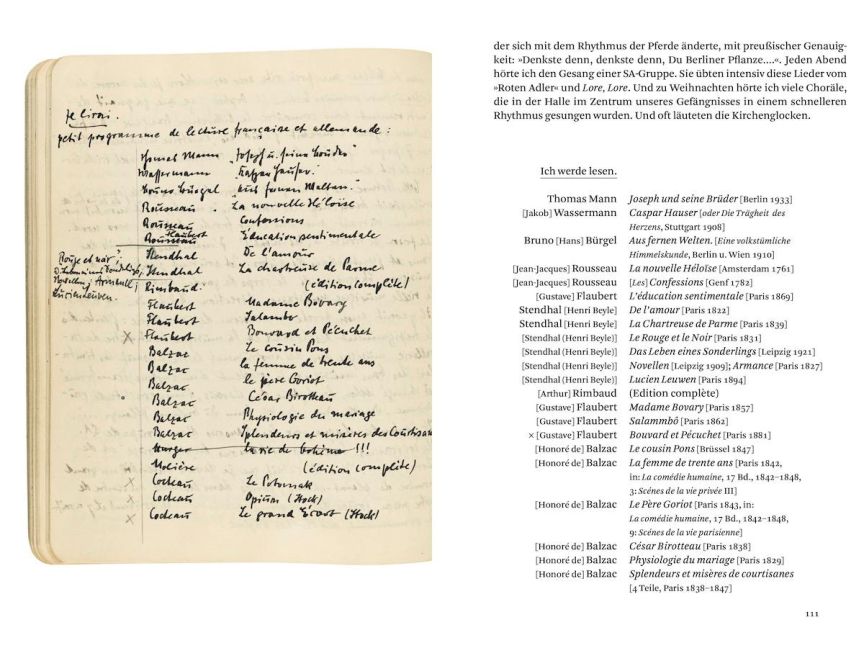 Je lirai.
petit programme de lecture française et allemande:
Thomas Mann „Joseph u. seine Brüder"
Wassermann „Caspar Hauser."
Bruno Bürgel „Aus fernen Welten."
Rousseau La nouvelle Héloise
Rousseau Confessions
Rousseau Flaubert Éducation sentimentale
Stendhal De l'amour
Stendhal La chartreuse de Parme
Rimbaud. (édition complète)
Rouge et noir,
Novellen; Armance;
Lucien Leuwen.
Flaubert Madame Bovary
Flaubert Salambo
x Flaubert Bouvard et Pécuchet
Balzac Le cousin Pons
Balzac la femme de trente ans
Balzac le père Goriot
Balzac César Birotteau
Balzac Physiologie du mariage
Balzac Splendeurs et misères des Courtisan
Murger la vie de bohème !!!
Molière (édition complète)
x Cocteau Le Potomak
x Cocteau Opium (Stock)
x Cocteau Le grand Écart (Stock)
der sich mit dem Rhythmus der Pferde änderte, mit preußischer Genauig-
keit: »Denkste denn, denkste denn, Du Berliner Pflanze....«. Jeden Abend
hörte ich den Gesang einer SA-Gruppe. Sie übten intensiv diese Lieder vom
»Roten Adler« und Lore, Lore. Und zu Weihnachten hörte ich viele Choräle,
die in der Halle im Zentrum unseres Gefängnisses in einem schnelleren
Rhythmus gesungen wurden. Und oft läuteten die Kirchenglocken.
Ich werde lesen.
Thomas Mann Joseph und seine Brüder [Berlin 1933]
[Jakob] Wassermann Caspar Hauser [oder Die Trägheit des
Herzens, Stuttgart 1908]
Bruno [Hans] Bürgel Aus fernen Welten. [Eine volkstümliche
Himmelskunde, Berlin u. Wien 1910]
[Jean-Jacques] Rousseau La nouvelle Héloïse [Amsterdam 1761]
[Jean-Jacques] Rousseau [Les] Confessions [Genf 1782]
[Gustave] Flaubert L'éducation sentimentale [Paris 1869]
Stendhal [Henri Beyle] De l'amour [Paris 1822]
Stendhal [Henri Beyle] La Chartreuse de Parme [Paris 1839]
[Stendhal (Henri Beyle)] Le Rouge et le Noir [Paris 1831]
[Stendhal (Henri Beyle)] Das Leben eines Sonderlings [Leipzig 1921]
[Stendhal (Henri Beyle)] Novellen [Leipzig 1909]; Armance [Paris 1827]
[Stendhal (Henri Beyle)] Lucien Leuwen [Paris 1894]
[Arthur] Rimbaud (Edition complète)
[Gustave] Flaubert Madame Bovary [Paris 1857]
[Gustave] Flaubert Salammbô [Paris 1862]
× [Gustave] Flaubert Bouvard et Pécuchet [Paris 1881]
[Honoré de] Balzac Le cousin Pons [Brüssel 1847]
[Honoré de] Balzac La femme de trente ans [Paris 1842,
in: La comédie humaine, 17 Bd., 1842–1848,
3: Scénes de la vie privée III]
[Honoré de] Balzac Le Père Goriot [Paris 1843, in:
La comédie humaine, 17 Bd., 1842–1848,
9: Scénes de la vie parisienne]
[Honoré de] Balzac César Birotteau [Paris 1838]
[Honoré de] Balzac Physiologie du mariage [Paris 1829]
[Honoré de] Balzac Splendeurs et misères de courtisanes
[4 Teile, Paris 1838–1847]
111